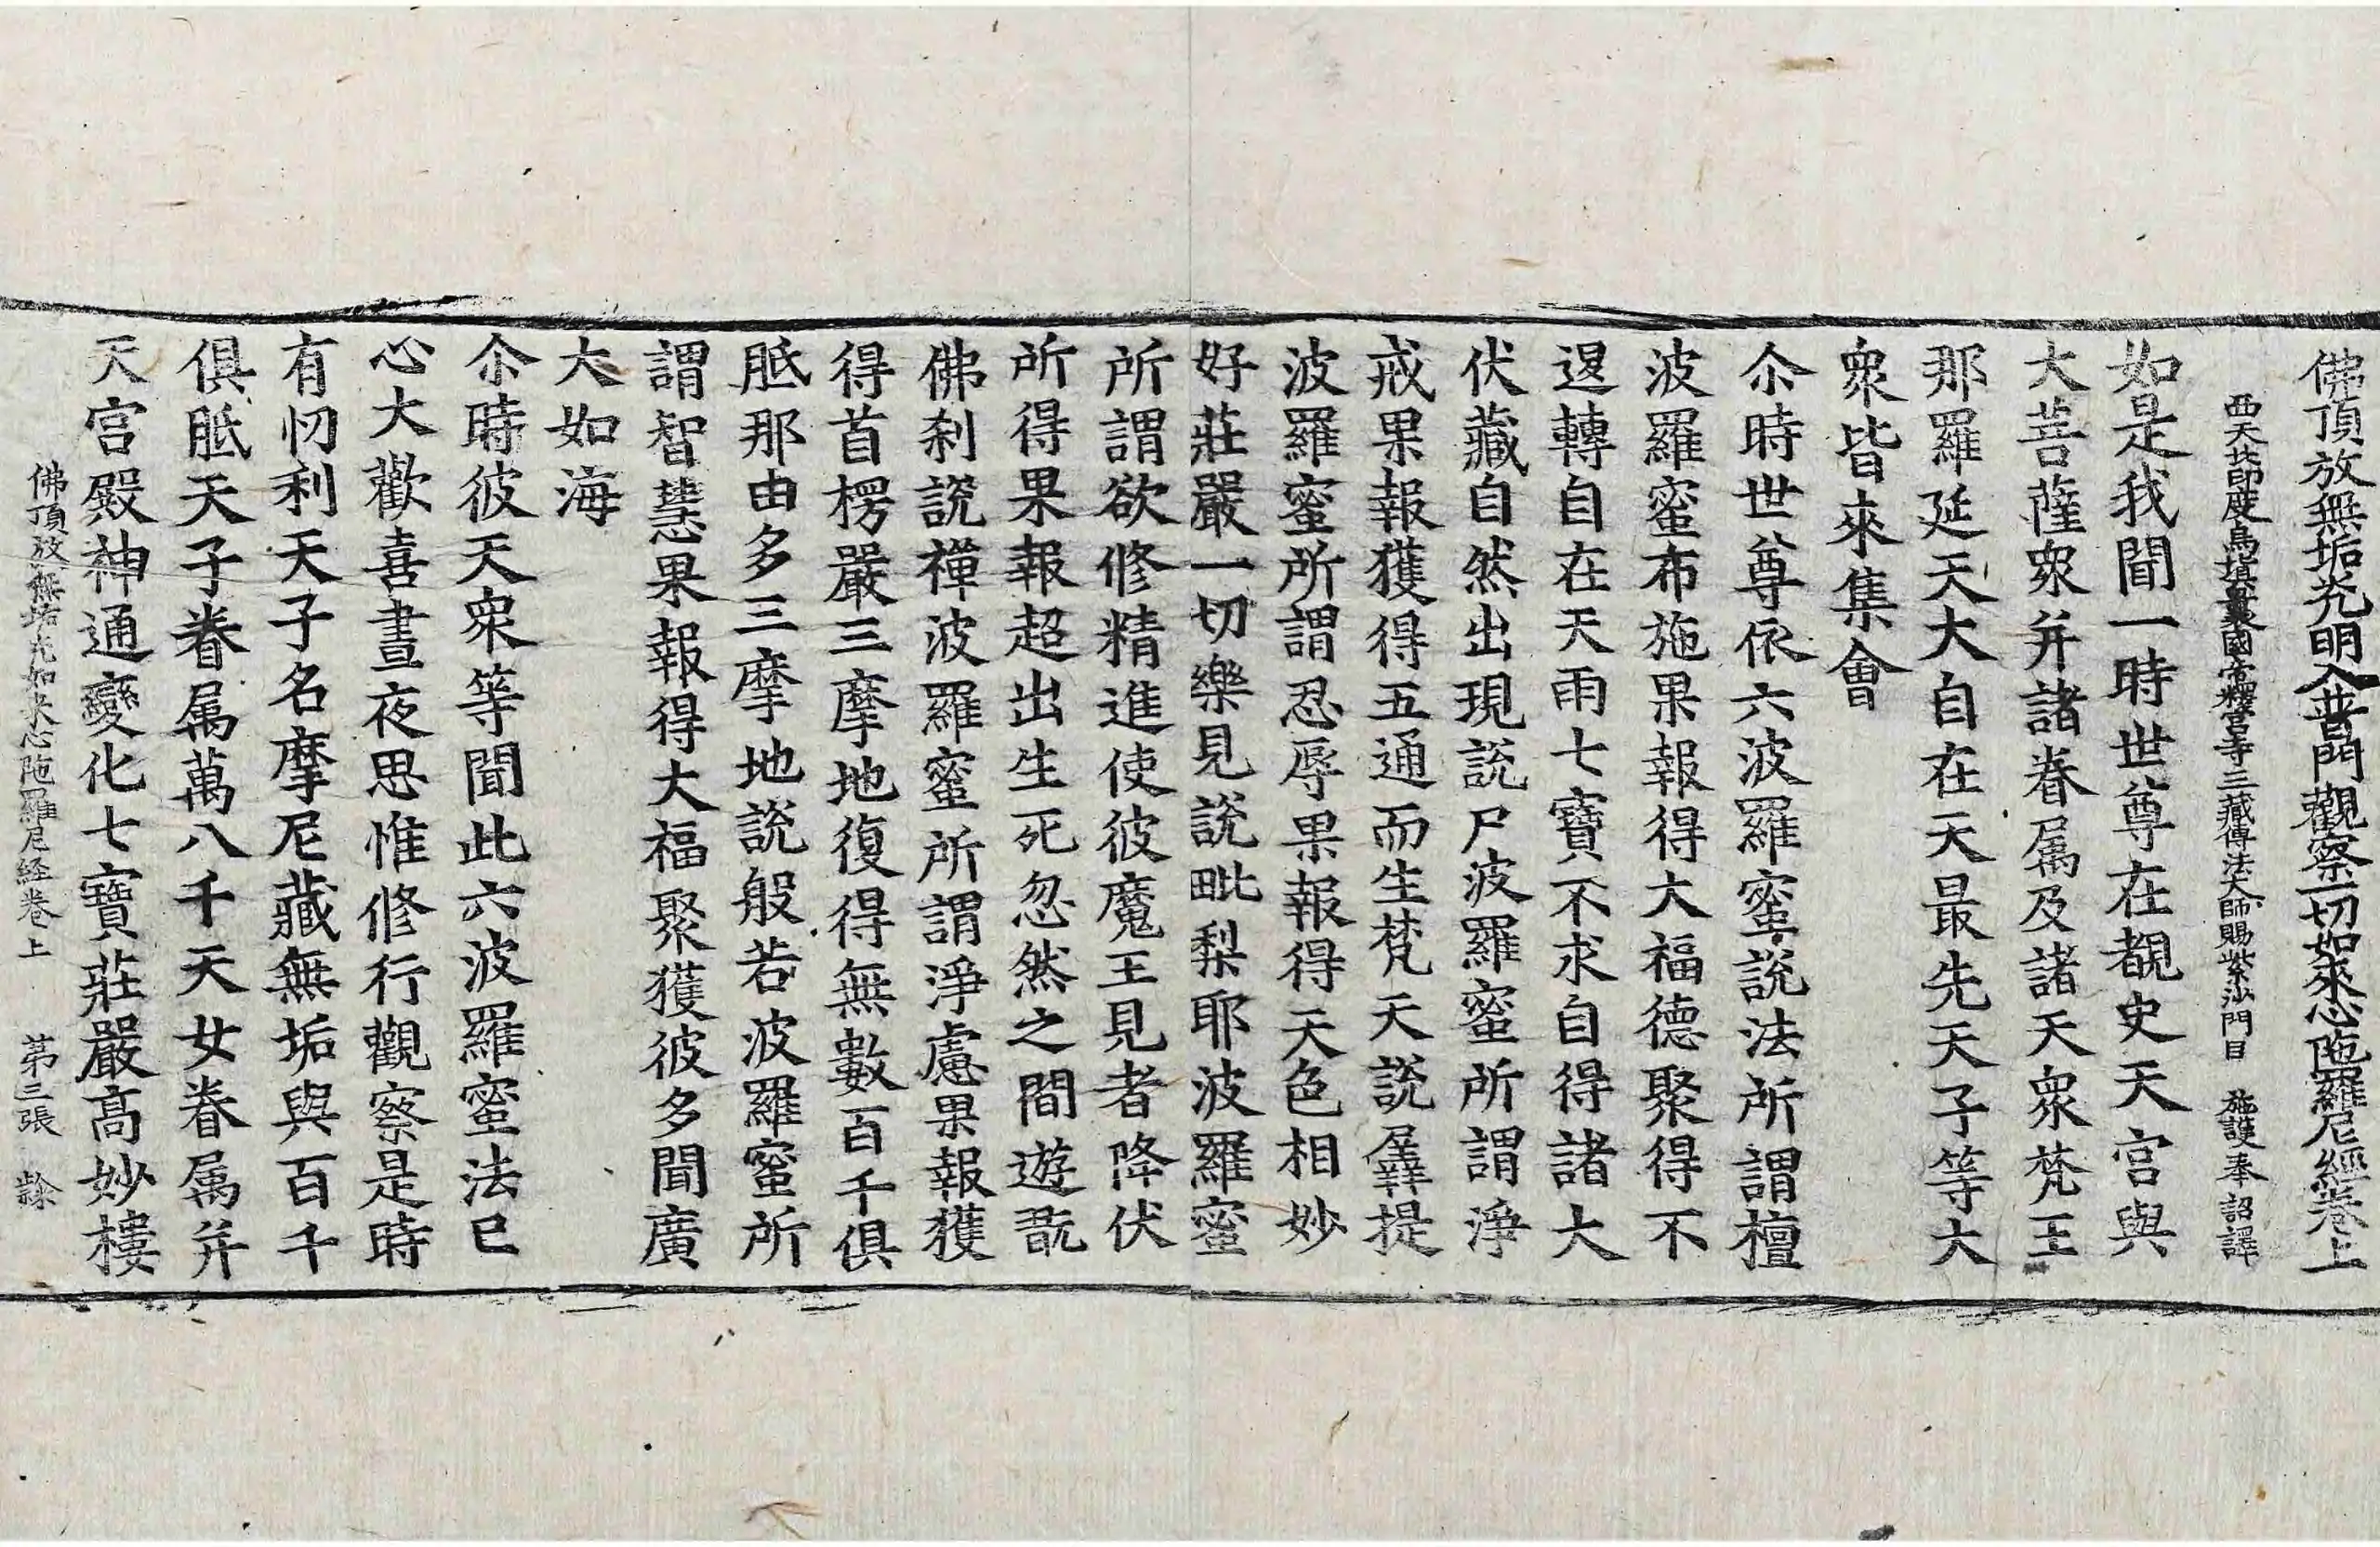 佛頂放無垢光明入普門觀察一切如來心陁羅尼經卷上
西天北印度烏塡曩國帝釋宮寺三藏傳法大師賜紫沙門臣 施護奉 詔譯
如是我聞一時世尊在覩史天宮與
大菩薩衆并諸眷属及諸天衆梵王
那羅延天大自在天最先天子等大
衆皆來集會
尒時世尊依六波羅蜜說法所謂檀
波羅蜜布施果報得大福德聚得不
退轉自在天雨七寶不求自得諸大
伏藏自然出現說尸波羅蜜所謂淨
戒果報獲得五通而生梵天說羼提
波羅蜜所謂忍辱果報得天色相妙
好莊嚴一切樂見說毗梨耶波羅蜜
所謂欲修精進使彼魔王見者降伏
所得果報超出生死忽然之間遊翫
佛刹說禪波羅蜜所謂淨慮果報獲
得首楞嚴三摩地復得無數百千俱
胝那由多三摩地說般若波羅蜜所
謂智慧果報得大福聚獲彼多聞廣
大如海
尒時彼天衆等聞此六波羅蜜法已
心大歡喜晝夜思惟修行觀察是時
有忉利天子名摩尼藏無垢與百千
俱胝天子眷属萬八千天女眷属并
天宮殿神通變化七寶莊嚴高妙樓
佛頂放無垢光如來心陁羅尼経卷上 苐三張